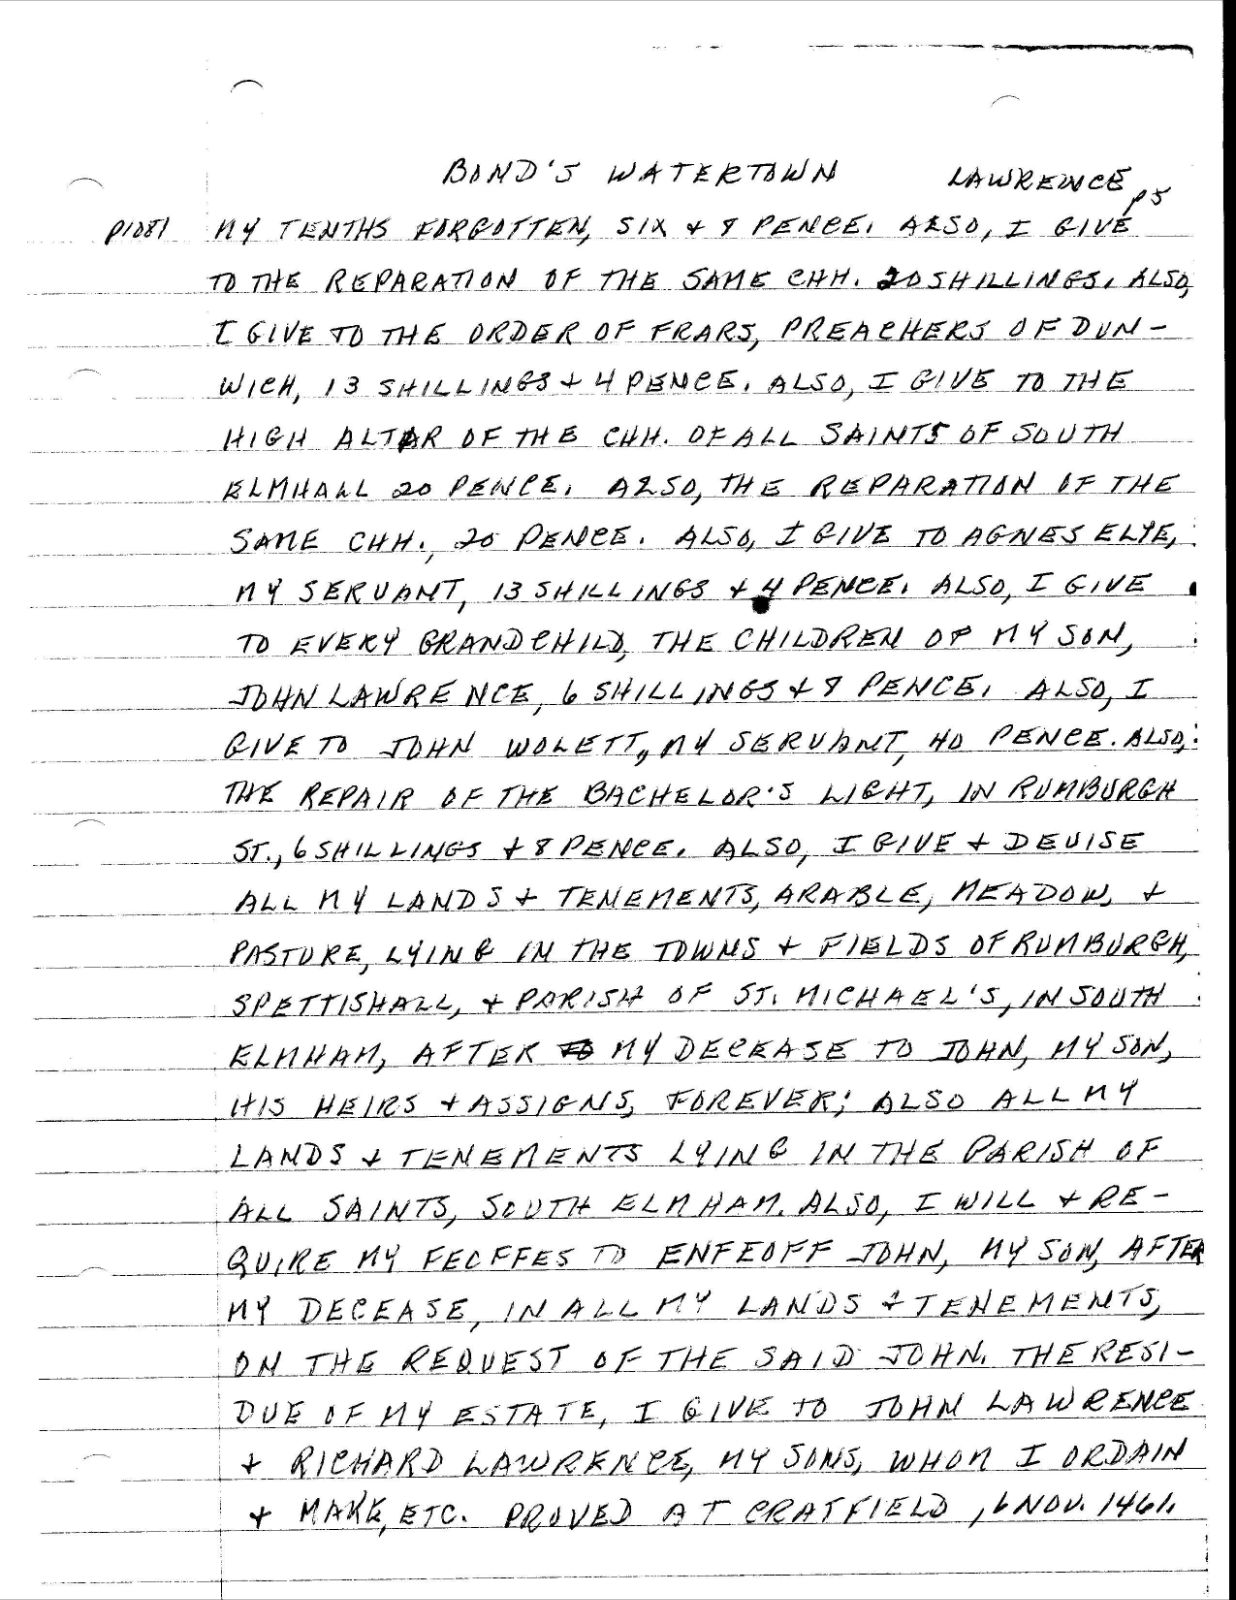 BOND'S WATERTOWN LAWRENCE P5
P1081 MY TENTHS FORGOTTEN, SIX + 8 PENCE. ALSO, I GIVE
TO THE REPARATION OF THE SAME CHH. 20 SHILLINGS. ALSO,
I GIVE TO THE ORDER OF FRARS, PREACHERS OF DUN-
WICH, 13 SHILLINGS + 4 PENCE. ALSO, I GIVE TO THE
HIGH ALTAR OF THE CHH. OF ALL SAINTS OF SOUTH
ELMHALL 20 PENCE. ALSO, THE REPARATION OF THE
SAME CHH., 20 PENCE. ALSO, I GIVE TO AGNES ELYE,
MY SERVANT, 13 SHILLINGS + 4 PENCE. ALSO, I GIVE
TO EVERY GRANDCHILD, THE CHILDREN OF MY SON,
JOHN LAWRENCE, 6 SHILLINGS + 8 PENCE. ALSO, I
GIVE TO JOHN WOLETT, MY SERVANT, 40 PENCE. ALSO,
THE REPAIR OF THE BACHELOR'S LIGHT, IN RUMBURGH
ST., 6 SHILLINGS + 8 PENCE. ALSO, I GIVE + DEVISE
ALL MY LANDS + TENEMENTS, ARABLE, MEADOW, +
PASTURE, LYING IN THE TOWNS + FIELDS OF RUMBURGH,
SPETTISHALL, + PARISH OF ST. MICHAEL'S, IN SOUTH
ELMHAM, AFTER MY DECEASE TO JOHN, MY SON,
HIS HEIRS + ASSIGNS, FOREVER; ALSO ALL MY
LANDS + TENEMENTS LYING IN THE PARISH OF
ALL SAINTS, SOUTH ELMHAM. ALSO, I WILL + RE-
QUIRE MY FEOFFES TO ENFEOFF JOHN, MY SON, AFTER
MY DECEASE, IN ALL MY LANDS + TENEMENTS,
ON THE REQUEST OF THE SAID JOHN. THE RESI-
DUE OF MY ESTATE, I GIVE TO JOHN LAWRENCE
+ RICHARD LAWRENCE, MY SONS, WHOM I ORDAIN
+ MAKE, ETC. PROVED AT CRATFIELD, 6 NOV. 1461.